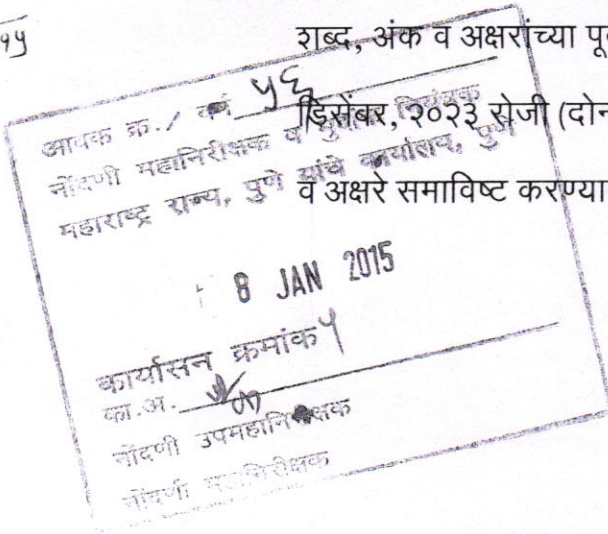 १५
शब्द, अंक व अक्षरांच्या
डिसेंबर, २०२३ रोजी
व अक्षरे समाविष्ट
आवक क्र./ ५६
नोंदणी महानिरीक्षक व मुद्रांक नियंत्रक
महाराष्ट्र राज्य, पुणे यांचे कार्यालय, पुणे
8 JAN 2015
कार्यासन क्रमांक ५
का.अ.
नोंदणी उपमहानिरीक्षक
नोंदणी महानिरीक्षक